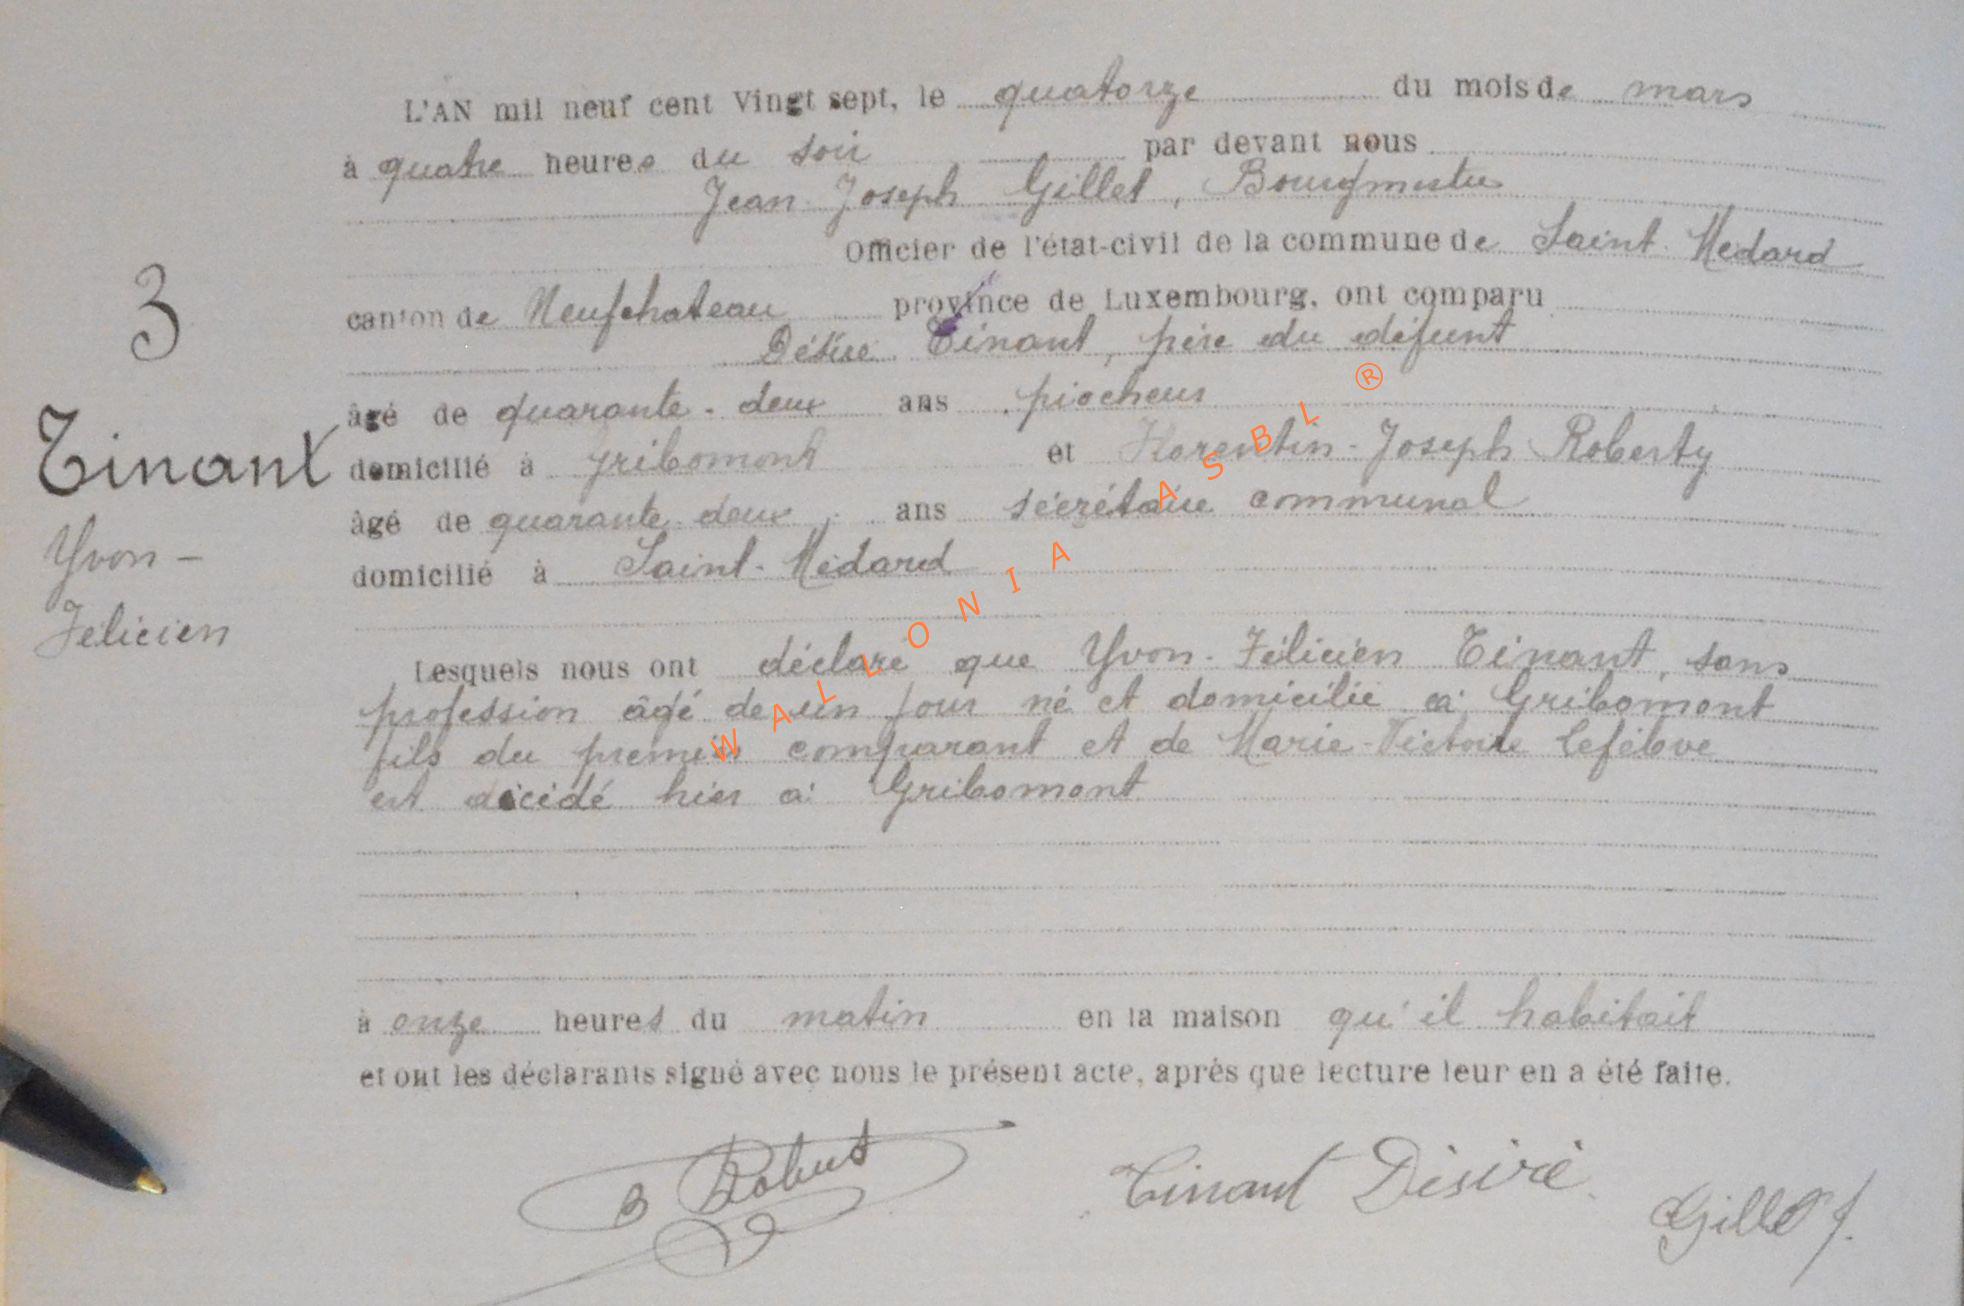 L'AN mil neuf cent Vingt sept, le quatorze du mois de mars
à quatre heures du soir par devant nous
Jean Joseph Gillet, Bourgmestre
Officier de l'état-civil de la commune de Saint-Médard
3
canton de Neufchateau province de Luxembourg, ont comparu
Désiré Tinant, père du défunt
âgé de quarante-deux ans piocheur
Tinant
domicilié à Gribomont et Florentin-Joseph Roberty
âgé de quarante-deux ans secrétaire communal
Yvon-
domicilié à Saint-Médard
Félicien
Lesquels nous ont déclaré que Yvon-Félicien Tinant, sans
profession âgé de un jour né et domicilié à Gribomont
fils du premier comparant et de Marie-Victoire
est décédé hier à Gribomont
à onze heures du matin en la maison qu'il habitait
et ont les déclarants signé avec nous le présent acte, après que lecture leur en a été faite.
Tinant Désiré
Gillet J.
WALLONIA ASBL ®